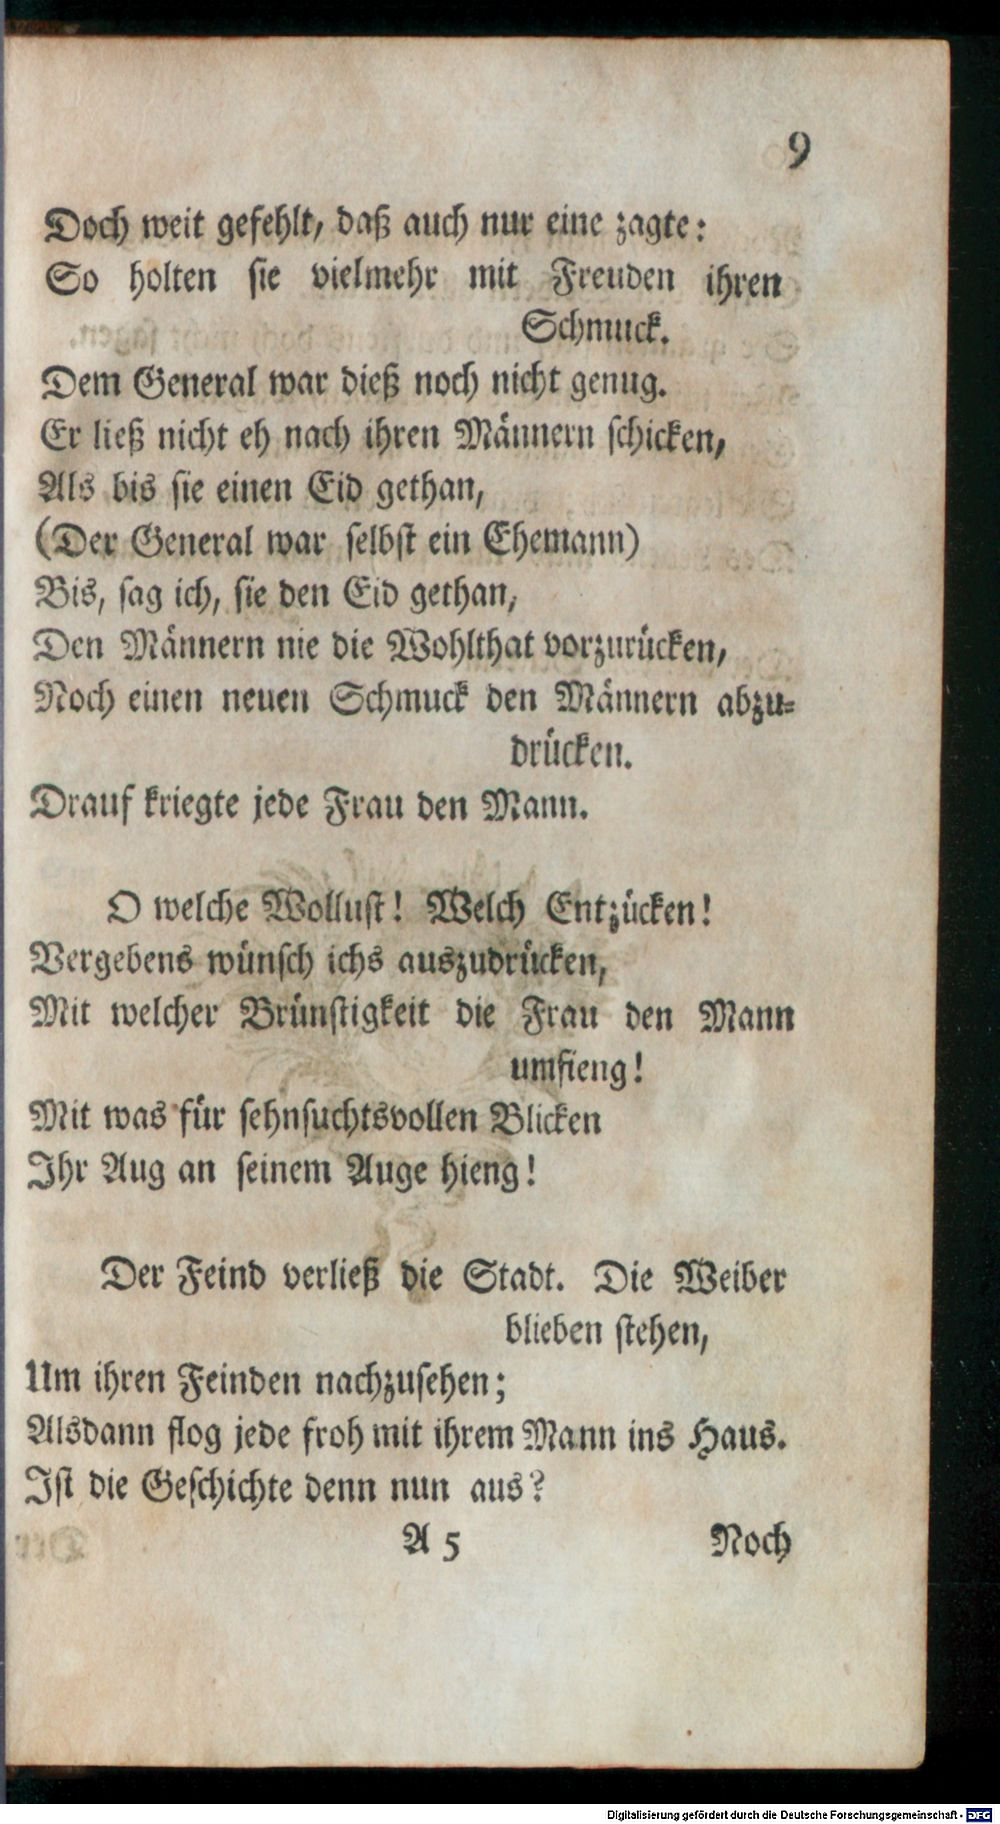 9
Doch weit gefehlt, daß auch nur eine zagte:
So holten sie vielmehr mit Freuden ihren
Schmuck.
Dem General war dieß noch nicht genug.
Er ließ nicht eh nach ihren Männern schicken,
Als bis sie einen Eid gethan,
(Der General war selbst ein Ehemann)
Bis, sag ich, sie den Eid gethan,
Den Männern nie die Wohlthat vorzurücken,
Noch einen neuen Schmuck den Männern abzu-
drücken.
Drauf kriegte jede Frau den Mann.
O welche Wollust! Welch Entzücken!
Vergebens wünsch ichs auszudrücken,
Mit welcher Brünstigkeit die Frau den Mann
umfieng!
Mit was für sehnsuchtsvollen Blicken
Ihr Aug an seinem Auge hieng!
Der Feind verließ die Stadt. Die Weiber
blieben stehen,
Um ihren Feinden nachzusehen;
Alsdann flog jede froh mit ihrem Mann ins Haus.
Ist die Geschichte denn nun aus?
A 5 Noch
Digitalisierung gefördert durch die Deutsche Forschungsgemeinschaft - DFG